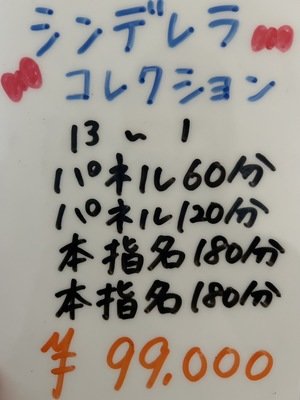 シンデレラ
コレクション
13～1
パネル60分
パネル120分
本指名180分
本指名180分
¥99.000